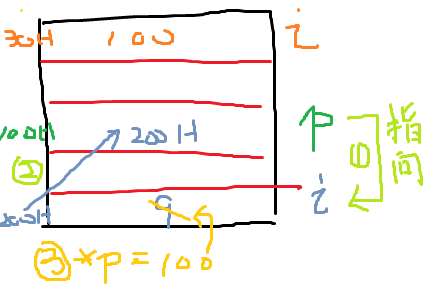 300H 100 i
100H 200H p ① 指向
② i
200H 9
③ *p = 100